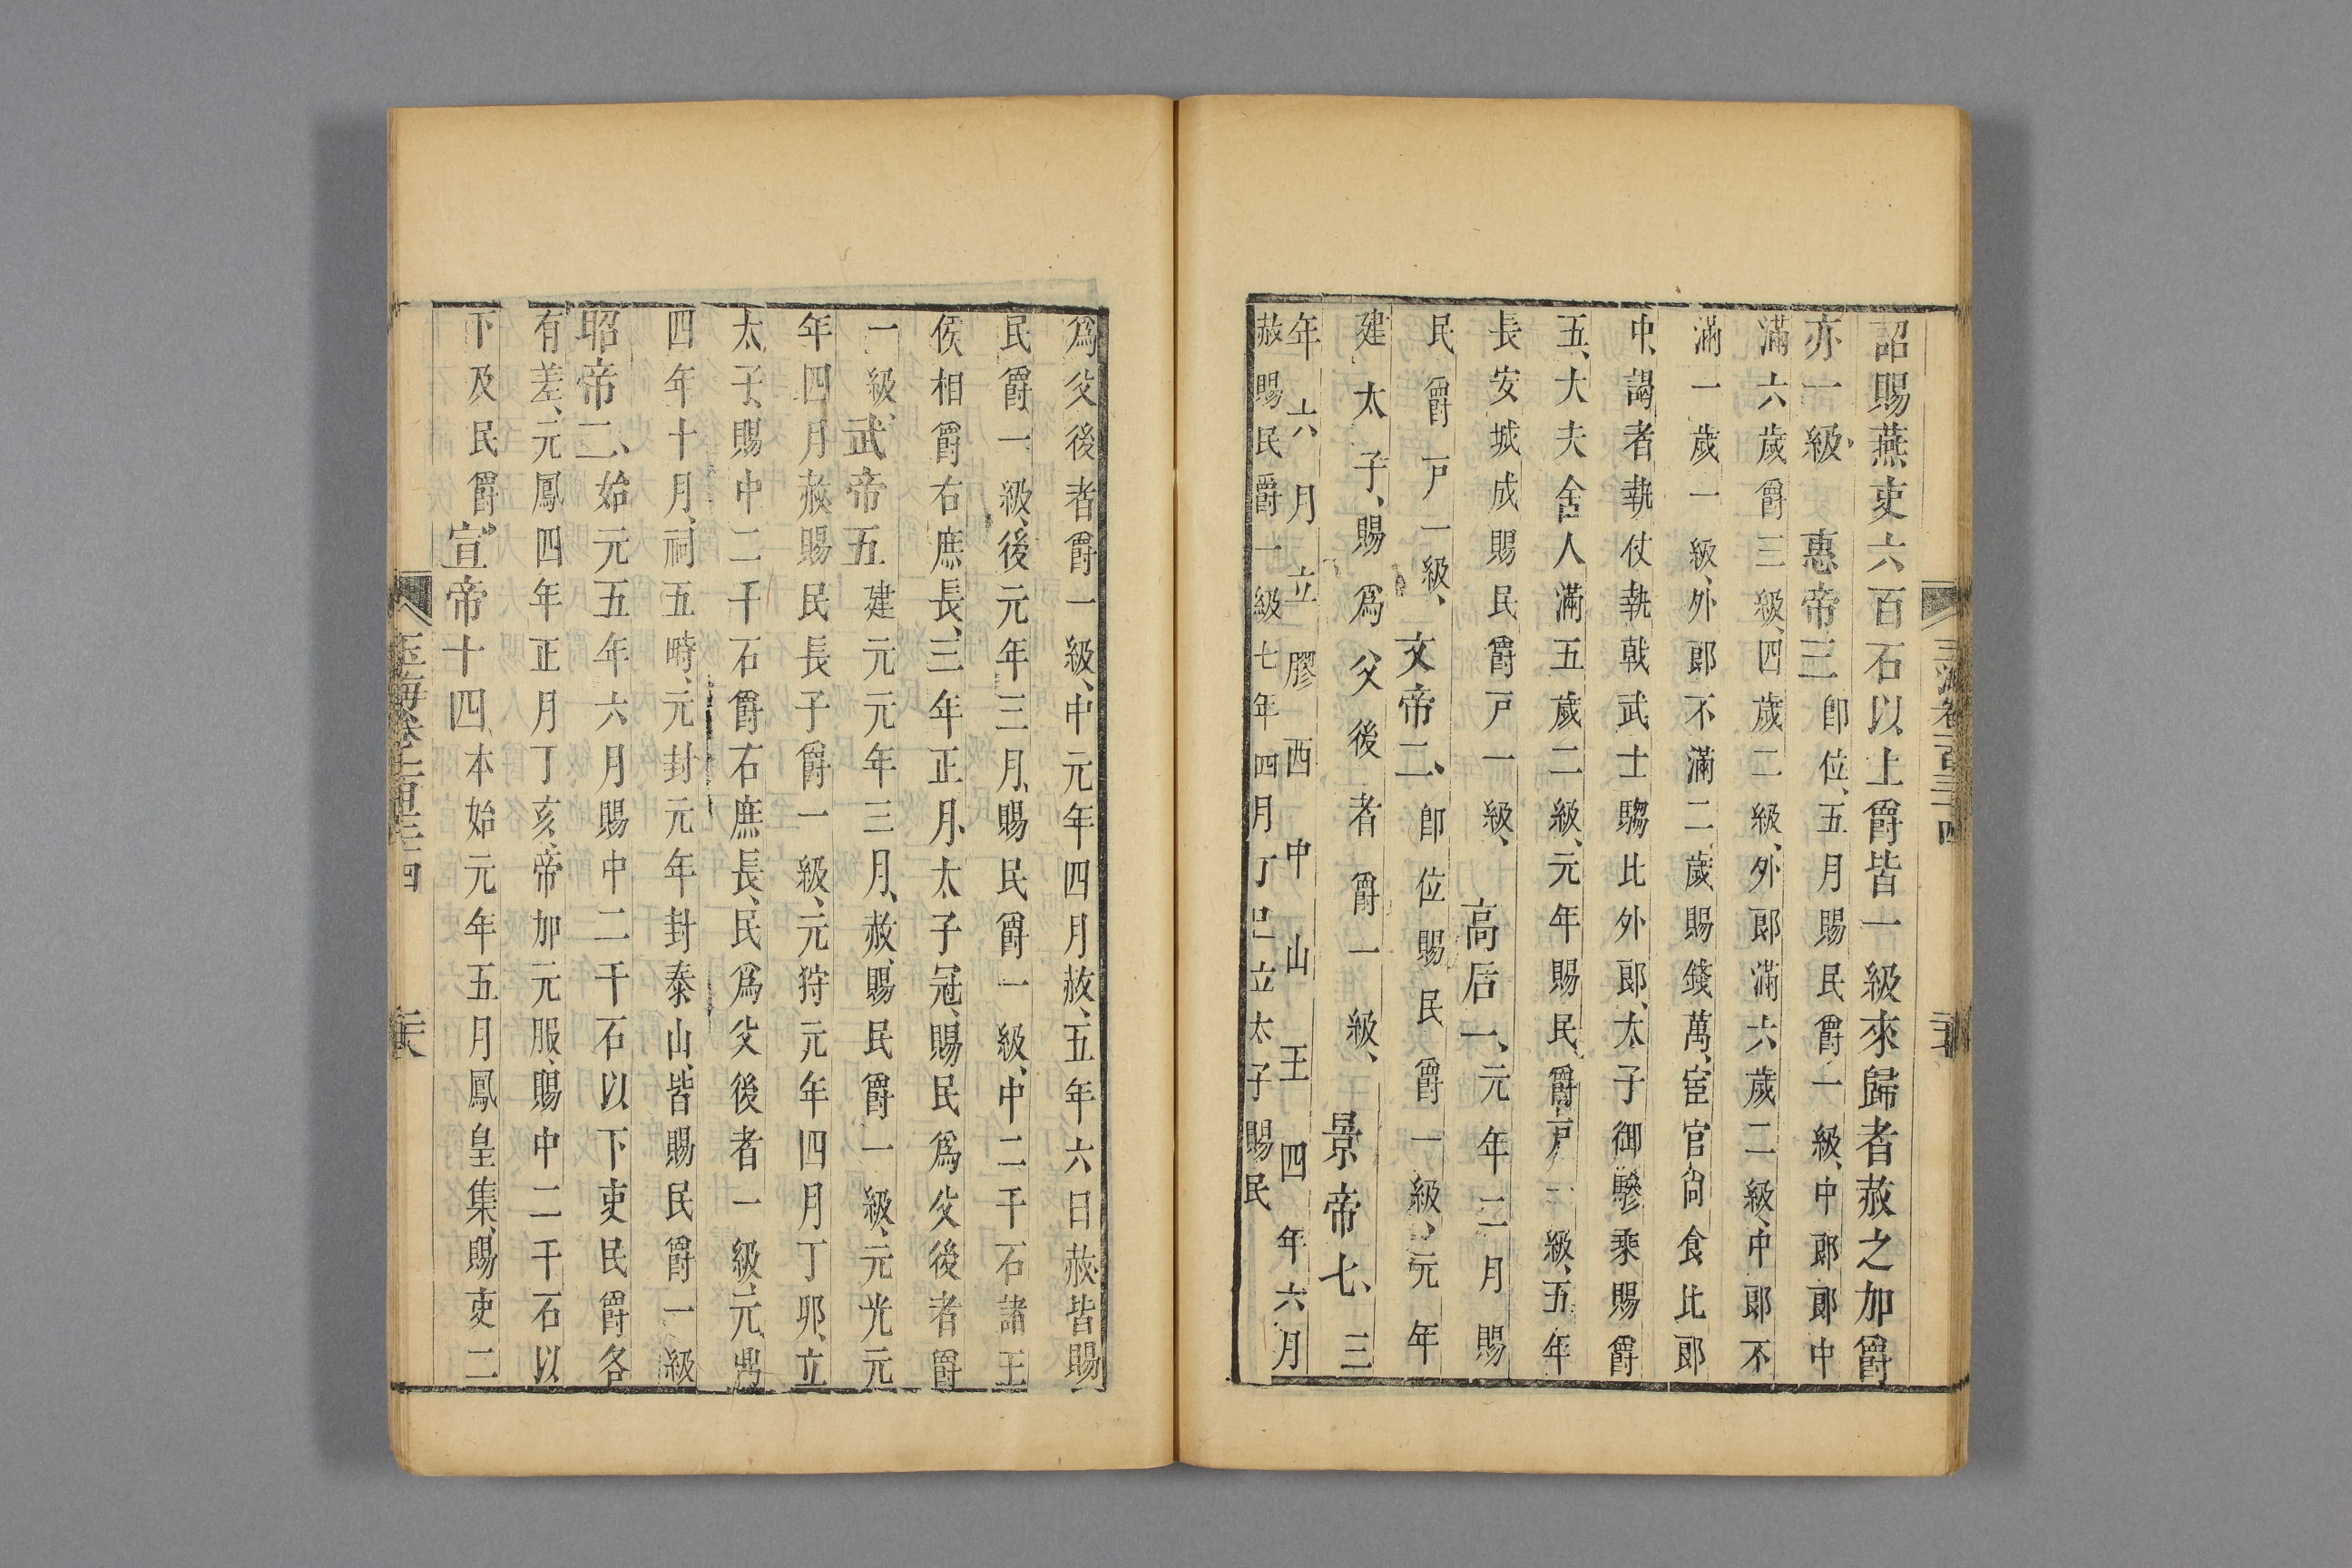 詔賜燕吏六百石以上爵皆一級來歸者赦之加爵
亦一級惠帝三即位五月賜民爵一級中郎郎中
滿六歲爵三級四歲二級外郎滿六歲二級中郎不
滿一歲一級外郎不滿二歲賜錢萬宦官尚食比郎
中謁者執仗執戟武士騶比外郎太子御驂乘賜爵
五大夫舍人滿五歲二級元年賜民爵戶一級五年
長安城成賜民爵戶一級高后一元年二月賜
民爵戶一級文帝二即位賜民爵一級元年
建太子賜爲父後者爵一級景帝七三
年六月立膠西中山王四年六月
赦賜民爵一級七年四月丁巳立太子賜民
爲父後者爵一級中元年四月赦五年六日赦皆賜
民爵一級後元年三月賜民爵一級中二千石諸王
侯相爵右庶長三年正月太子冠賜民爲父後者爵
一級武帝五建元元年三月赦賜民爵一級元光元
年四月赦賜民長子爵一級元狩元年四月丁卯立
太子賜中二千石爵右庶長民爲父後者一級元鼎
四年十月祠五畤元封元年封泰山皆賜民爵一級
昭帝二始元五年六月賜中二千石以下吏民爵各
有差元鳳四年正月丁亥帝加元服賜中二千石以
下及民爵宣帝十四本始元年五月鳳皇集賜吏二
玉海卷一百三十四